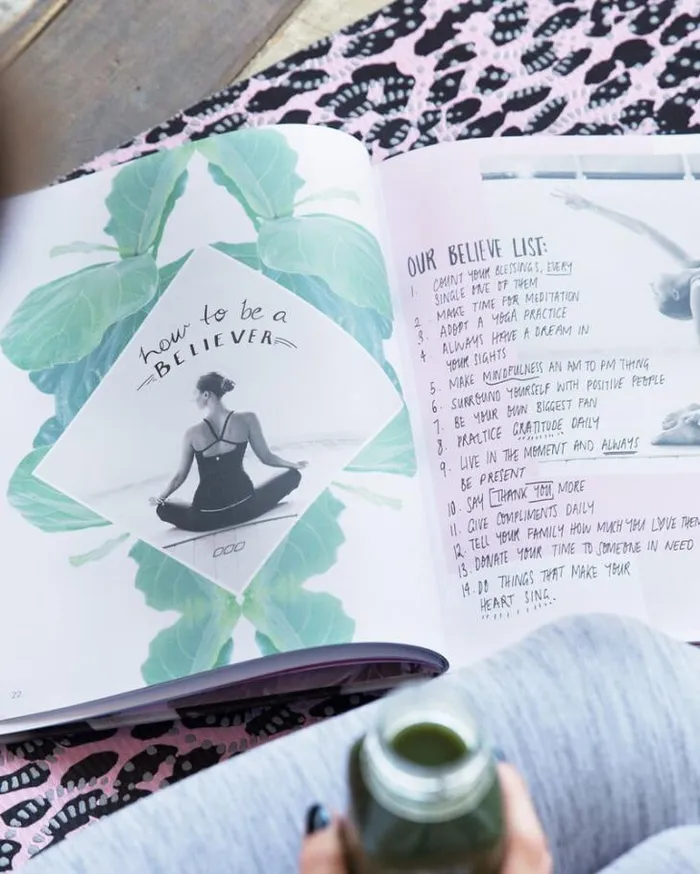 how to be a
BELIEVER
22
OUR BELIEVE LIST:
1. COUNT YOUR BLESSINGS, EVERY
SINGLE ONE OF THEM
2. MAKE TIME FOR MEDITATION
3. ADOPT A YOGA PRACTICE
4. ALWAYS HAVE A DREAM IN
YOUR SIGHTS
5. MAKE MINDFULNESS AN AM TO PM THING
6. SURROUND YOURSELF WITH POSITIVE PEOPLE
7. BE YOUR OWN BIGGEST FAN
8. PRACTICE GRATITUDE DAILY
9. LIVE IN THE MOMENT AND ALWAYS
BE PRESENT
10. SAY THANK YOU MORE
11. GIVE COMPLIMENTS DAILY
12. TELL YOUR FAMILY HOW MUCH YOU LOVE THEM
13. DONATE YOUR TIME TO SOMEONE IN NEED
14. DO THINGS THAT MAKE YOUR
HEART SING.